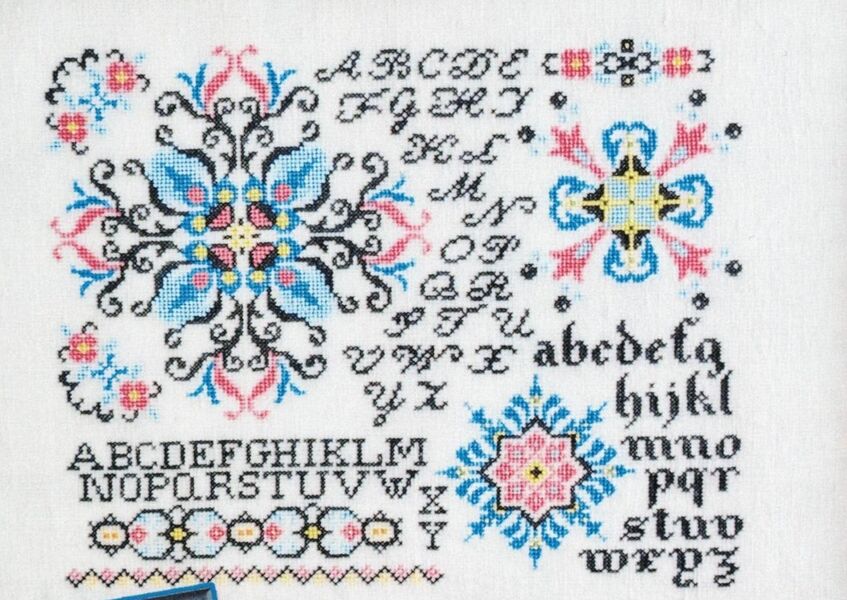 ABCDE
FGHI
KL
MN
OP
QR
STU
VWX
YZ
abcdefg
hijkl
mno
pqr
stuv
wxyz
ABCDEFGHIKLM
NOPQRSTUVW
X
Y